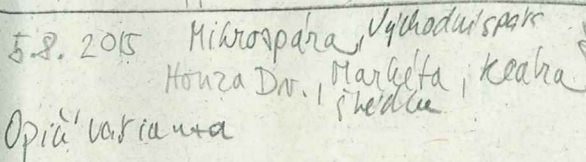 5.8. 2015 Mikrospára, Východní spára
Honza Dv., Markéta,
Opičí varianta